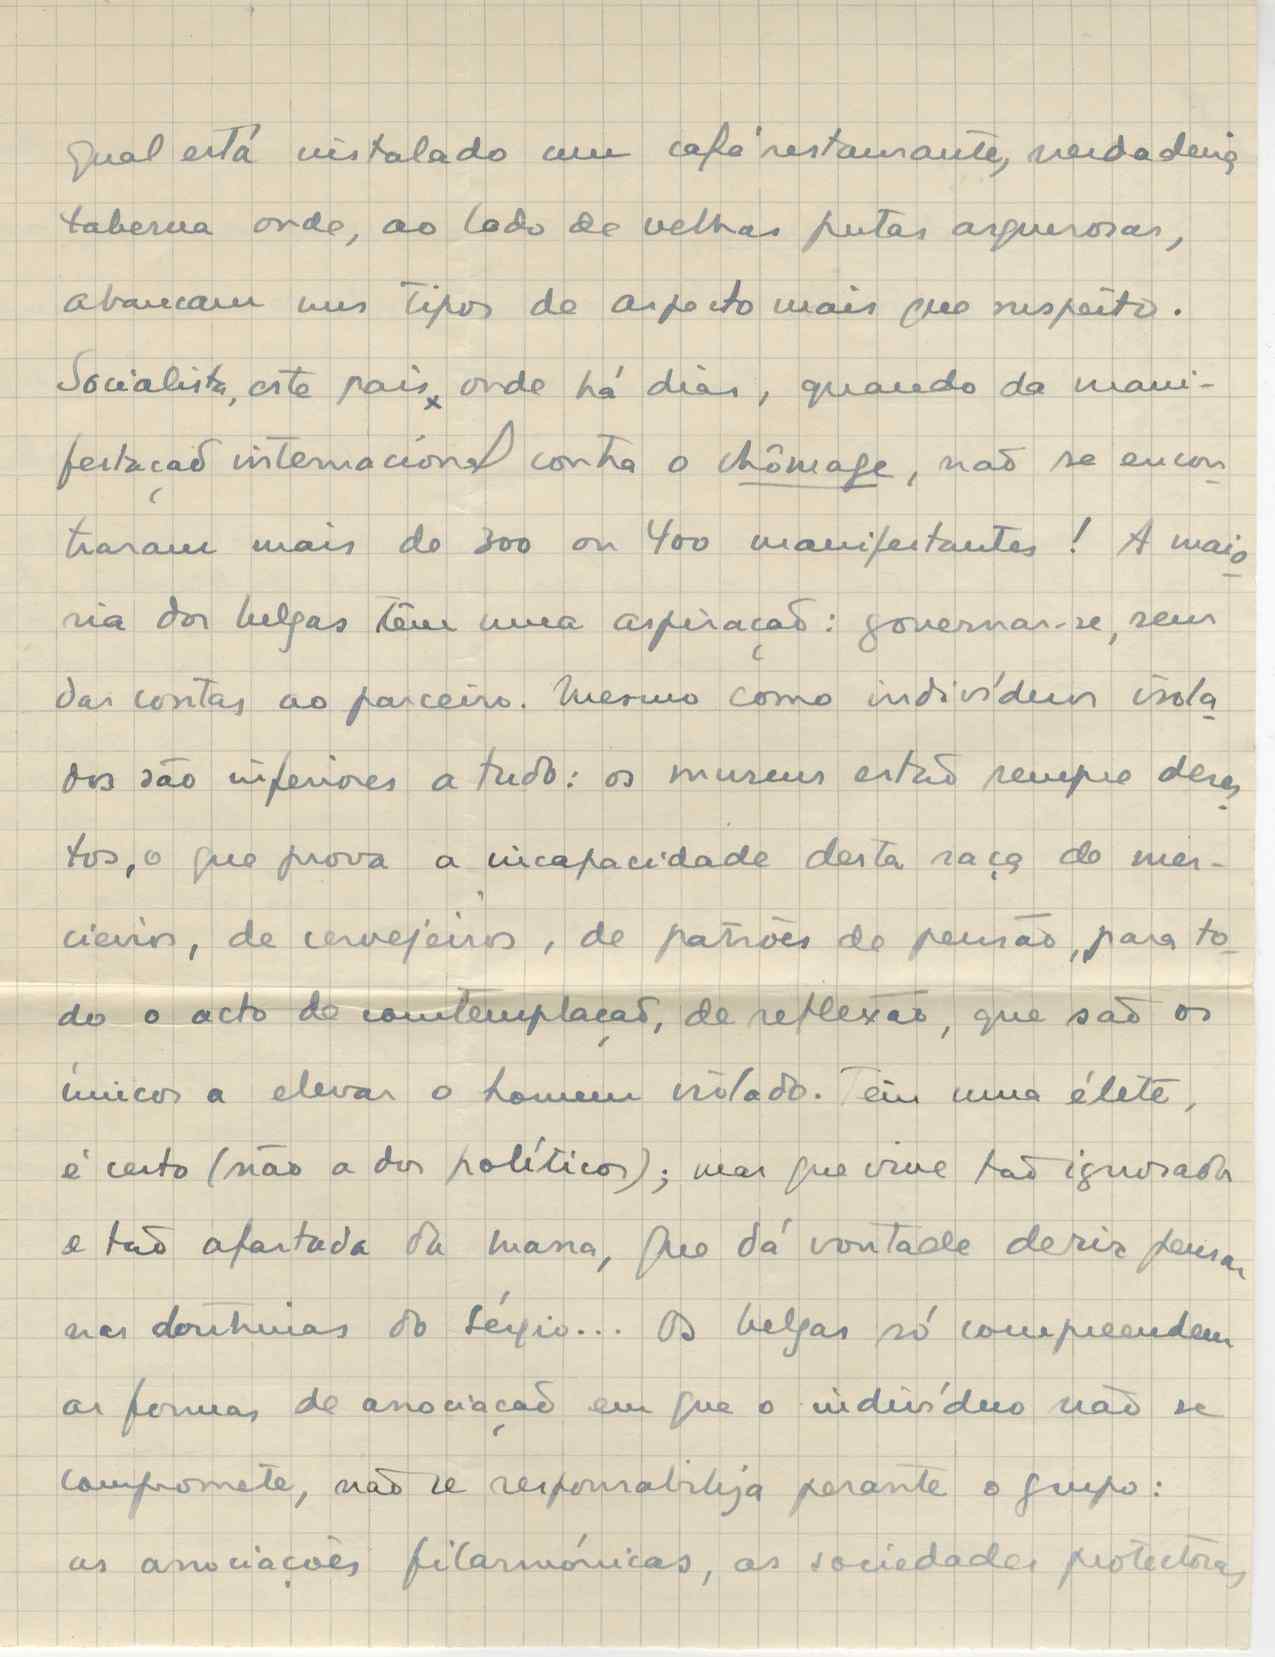 qual está instalado um café restaurante, verdadeira
taberna onde, ao lado de velhas putas asquerosas,
abancam uns tipos de aspecto mais que suspeito.
Socialista, este país, onde há dias, quando da mani-
festação internacional contra o chômage, não se encon-
traram mais de 300 ou 400 manifestantes! A maio-
ria dos belgas têm uma aspiração: governar-se, sem
dar contas ao parceiro. Mesmo como indivíduos isola-
dos são inferiores a tudo: os museus estão sempre deser-
tos, o que prova a incapacidade desta raça de mer-
cieiros, de cervejeiros, de patrões de pensão, para to-
do o acto de contemplação, de reflexão, que são os
únicos a elevar o homem isolado. Têm uma élite,
é certo (não a dos políticos); mas que vive tão ignorada
e tão afastada da massa, que dá vontade de rir pensar
nas doutrinas do Sérgio... Os belgas só compreendem
as formas de associação em que o indivíduo não se
compromete, não se responsabiliza perante o grupo:
as associações filarmónicas, as sociedades protectoras